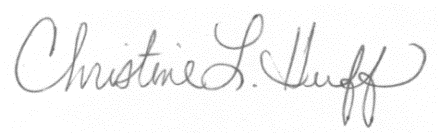 Christine L. Huff